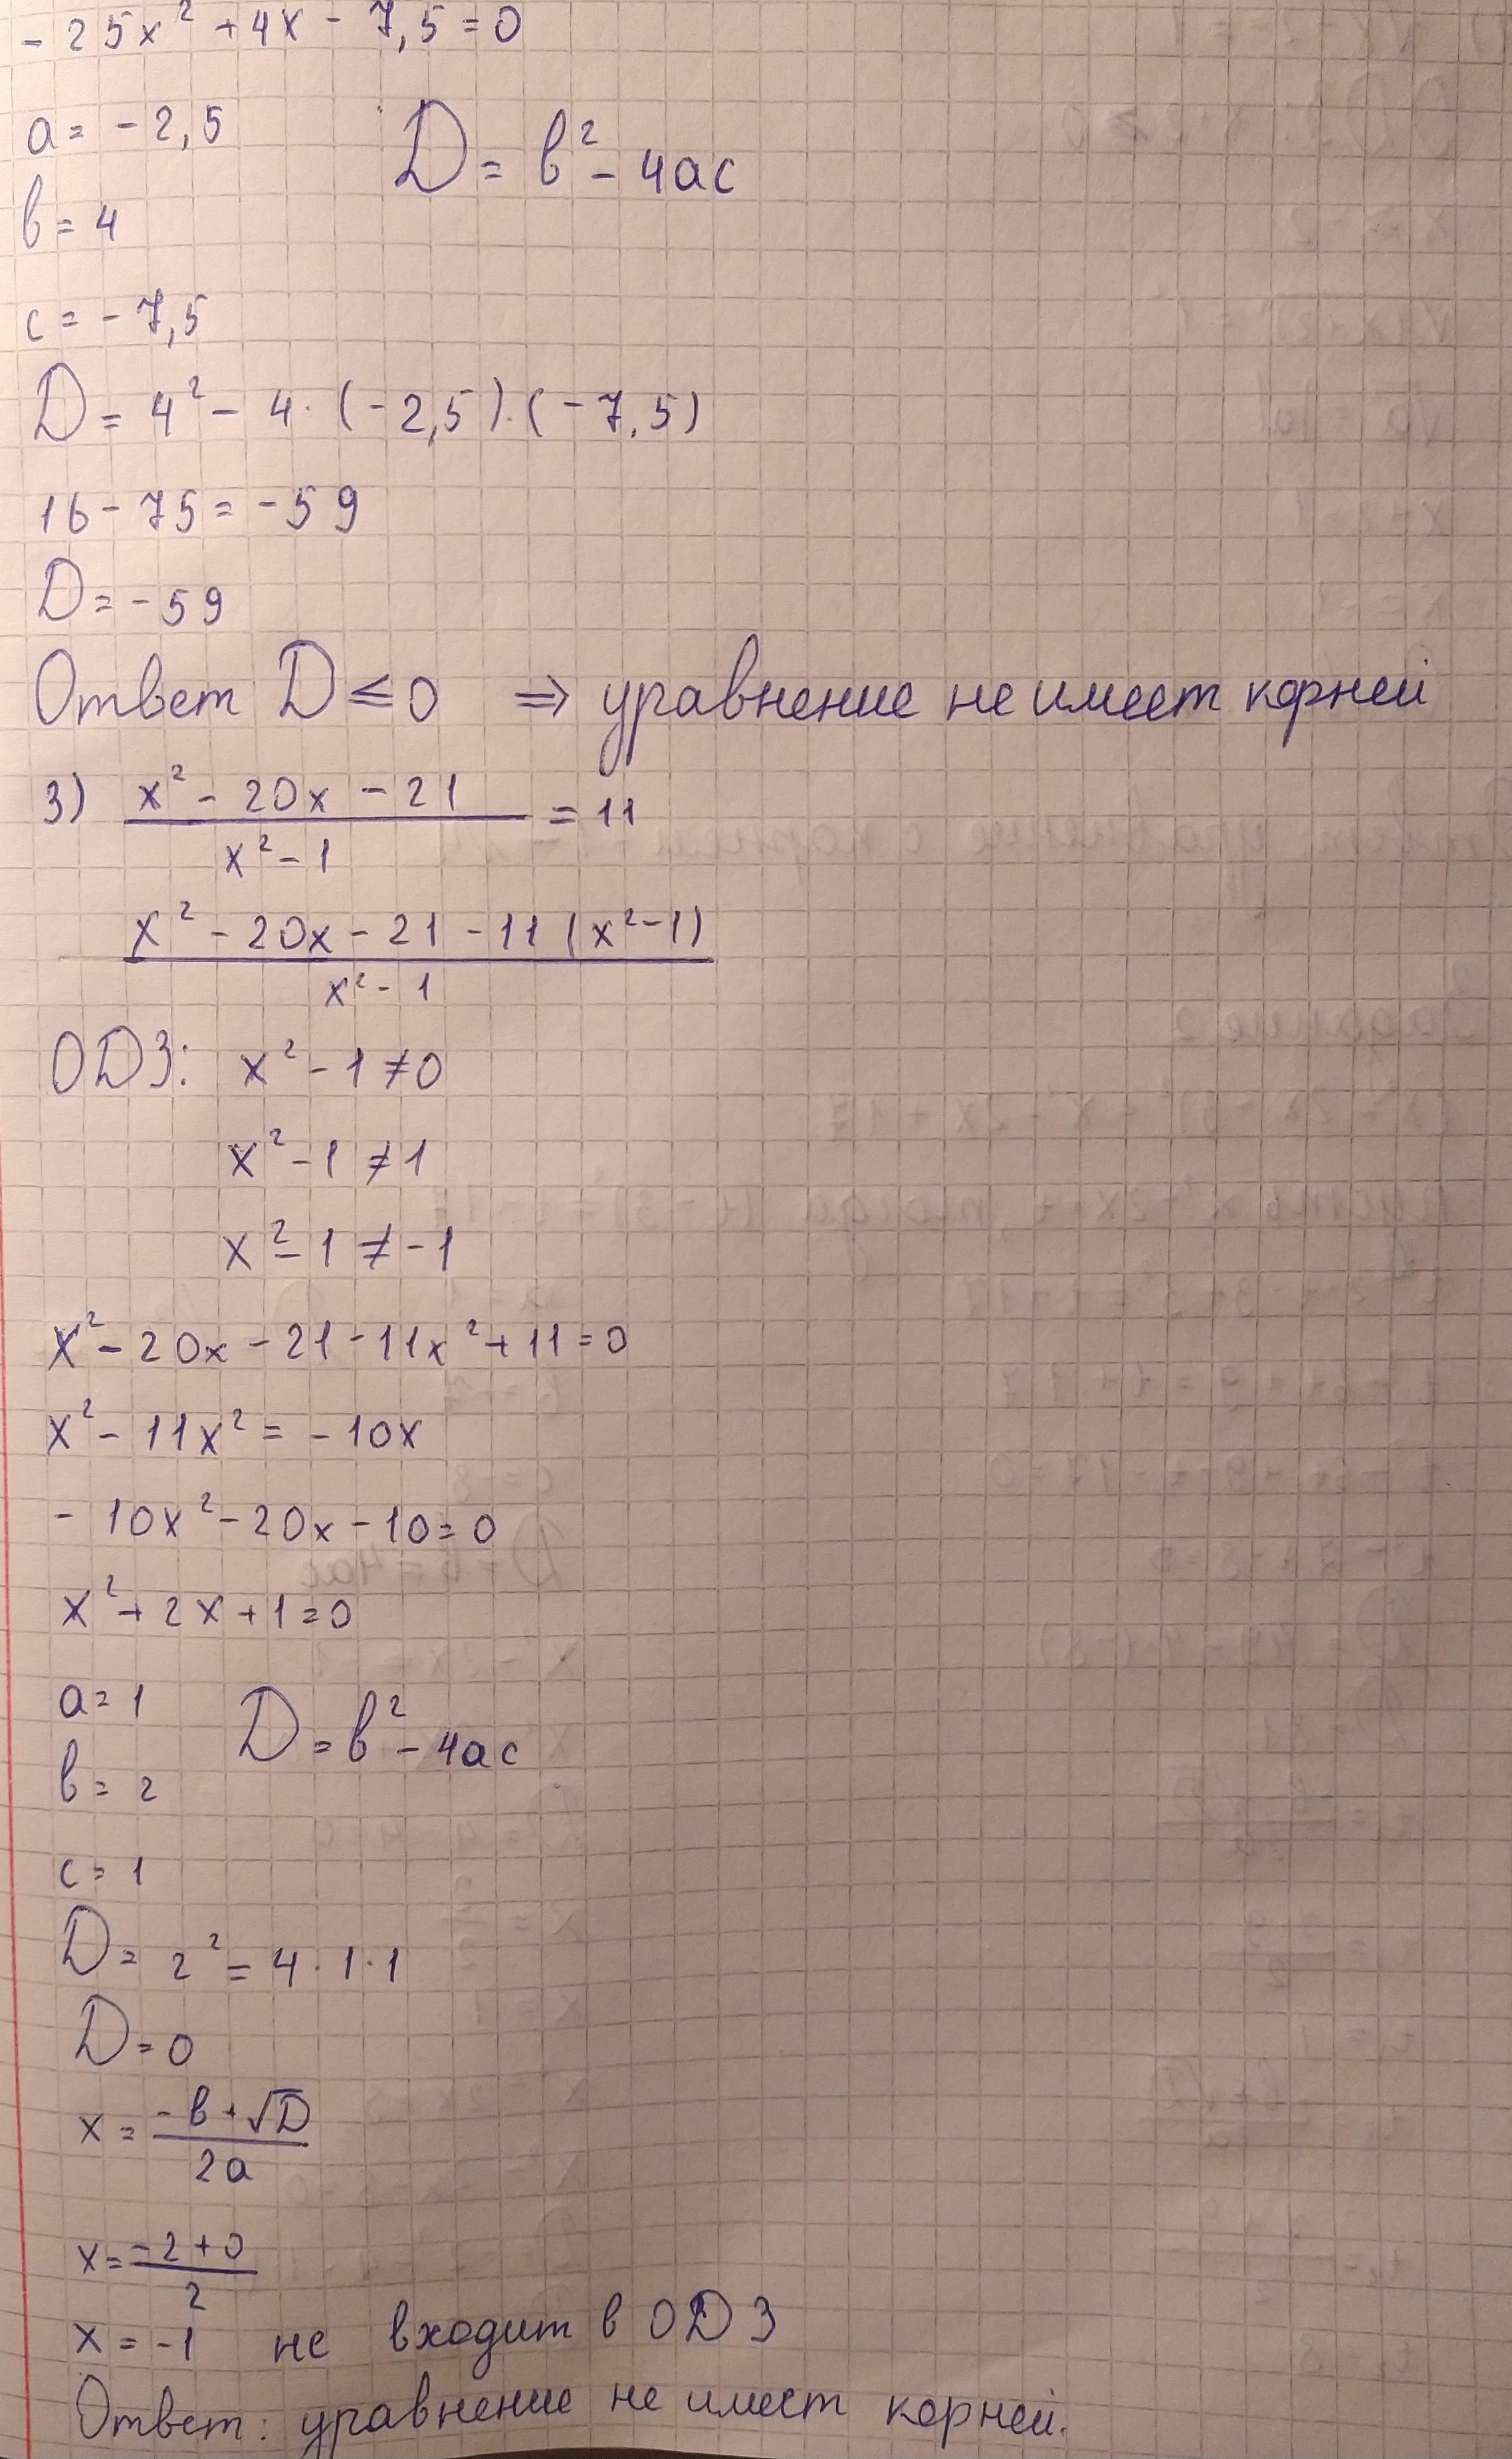 - 25x² + 4x - 7,5 = 0
a = - 2,5 D = b² - 4ac
b = 4
c = - 7,5
D = 4² - 4 · (-2,5) · (-7,5)
16 - 75 = -59
D = -59
Ответ D ≤ 0 ⇒ уравнение не имеет корней
3) (x² - 20x - 21)/(x² - 1) = 11
(x² - 20x - 21 - 11 (x² - 1))/(x² - 1)
ОДЗ: x² - 1 ≠ 0
x² - 1 ≠ 1
x² - 1 ≠ -1
x² - 20x - 21 - 11x² + 11 = 0
x² - 11x² = - 10x
- 10x² - 20x - 10 = 0
x² + 2x + 1 = 0
a = 1 D = b² - 4ac
b = 2
c = 1
D = 2² = 4 · 1 · 1
D = 0
x = (-b + √D)/2a
x = (-2 + 0)/2
x = -1 не входит в ОДЗ
Ответ: уравнение не имеет корней.